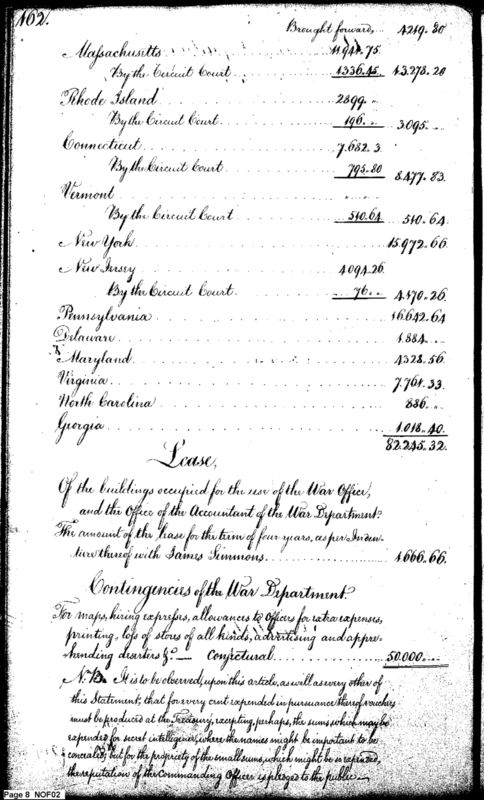 162.
Brought forward, ... 4219.80
Massachusetts ... 11941.75
By the Circuit Court ... 1336.45 13.278.20
Rhode Island ... 2899 "
By the Circuit Court ... 196 " 3.095 "
Connecticut ... 7.682.3
By the Circuit Court ... 795.80 8.477.83
Vermont
By the Circuit Court ... 510.64 510.64
New York ... 15.972.66
New Jersey ... 4094.26
By the Circuit Court ... 76 " 4.170.26
Pennsylvania ... 16.642.64
Delaware ... 1.884 "
Maryland ... 4328.56
Virginia ... 7.761.33
North Carolina ... 886 "
Georgia ... 1.018.40
82.245.32
Lease,
Of the buildings occupied for the use of the War Office,
and the Office of the Accountant of the War Department.
The amount of the lease for the term of four years, as per Inden-
ture thereof with James Simmons. ... 4.666.66
Contingencies of the War Department.
For maps, hiring expresses, allowances to Officers for extra expenses,
printing, loss of stores of all kinds, advertising and appre-
hending deserters &c. — Conjectural ... 50.000
N.B. It is to be observed, upon this article, as will as every other of
this Statement, that for every cent expended in pursuance thereof, vouchers
must be produced at the Treasury, excepting, perhaps, the sums, which may be
expended for secret intelligence, where the names might be important to be
concealed; but for the propriety of the small sums, which might be so expended,
the reputation of the Commanding Officer is pledged to the public.—
Page 8 NOF02